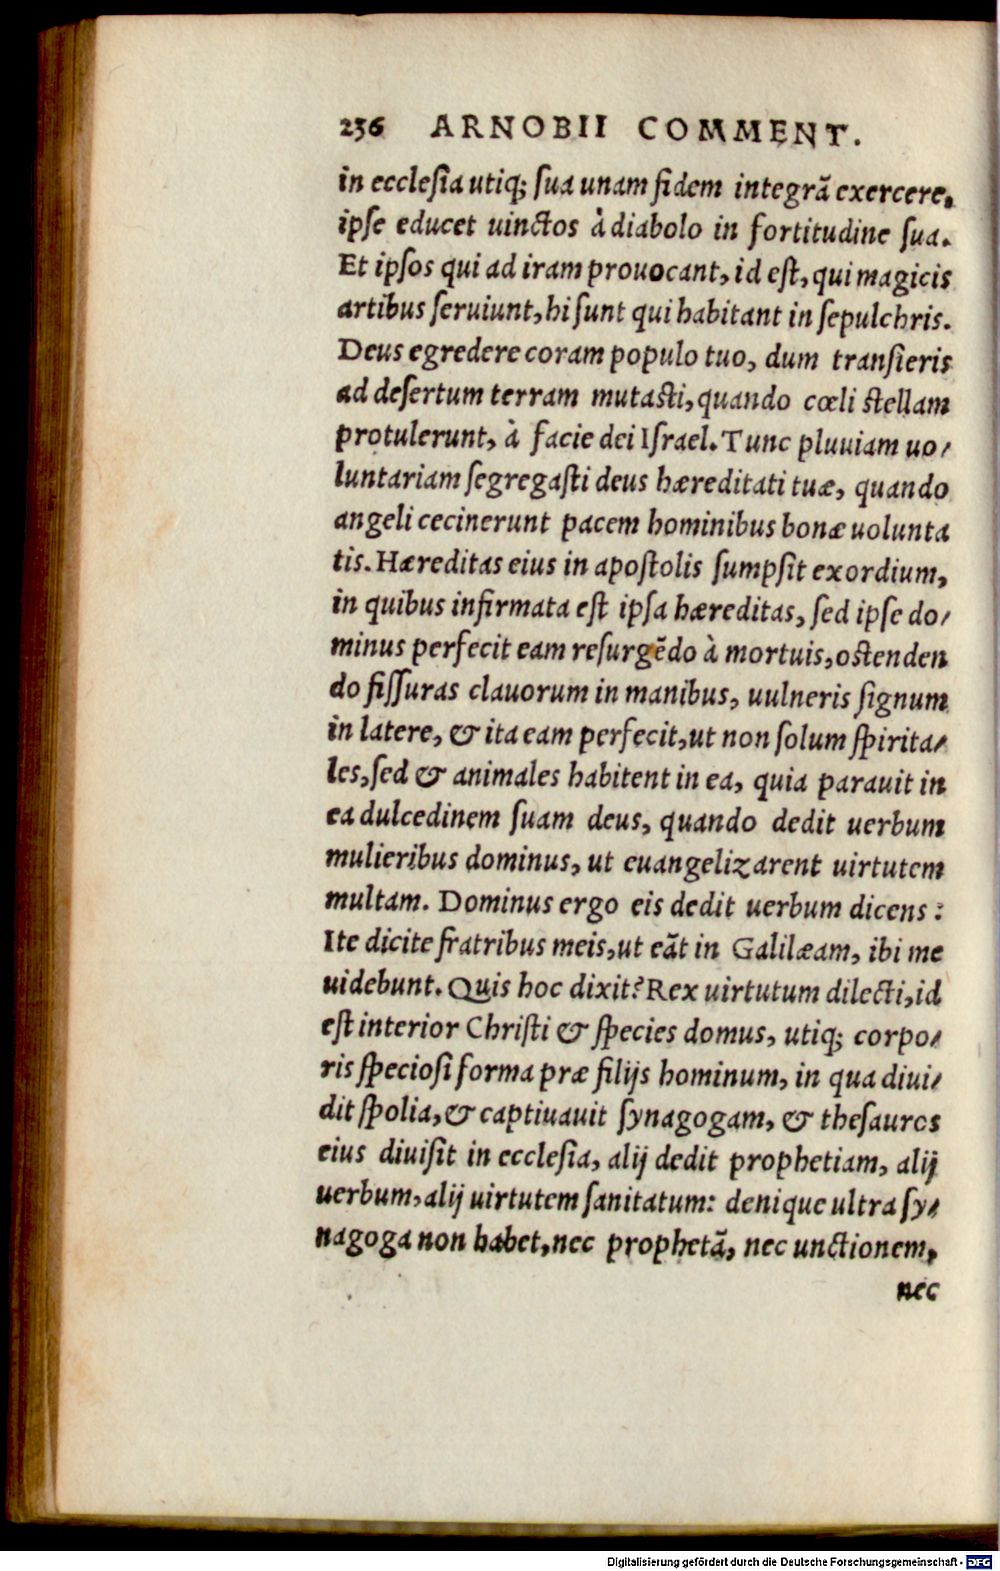 236 ARNOBII COMMENT.
in ecclesia utiq; sua unam fidem integrā exercere,
ipse educet uinctos à diabolo in fortitudine sua.
Et ipsos qui ad iram prouocant, id est, qui magicis
artibus seruiunt, hi sunt qui habitant in sepulchris.
Deus egredere coram populo tuo, dum transieris
ad desertum terram mutasti, quando cœli stellam
protulerunt, à facie dei Israel. Tunc pluuiam uo/
luntariam segregasti deus hæreditati tuæ, quando
angeli cecinerunt pacem hominibus bonæ uolunta
tis. Hæreditas eius in apostolis sumpsit exordium,
in quibus infirmata est ipsa hæreditas, sed ipse do/
minus perfecit eam resurgēdo à mortuis, ostenden
do fissuras clauorum in manibus, uulneris signum
in latere, & ita eam perfecit, ut non solum spirita/
les, sed & animales habitent in ea, quia parauit in
ea dulcedinem suam deus, quando dedit uerbum
mulieribus dominus, ut euangelizarent uirtutem
multam. Dominus ergo eis dedit uerbum dicens:
Ite dicite fratribus meis, ut eāt in Galilæam, ibi me
uidebunt. Quis hoc dixit? Rex uirtutum dilecti, id
est interior Christi & species domus, utiq; corpo/
ris speciosi forma præ filijs hominum, in qua diui/
dit spolia, & captiuauit synagogam, & thesauros
eius diuisit in ecclesia, alij dedit prophetiam, alij
uerbum, alij uirtutem sanitatum: denique ultra sy/
nagoga non habet, nec prophetā, nec unctionem,
nec
Digitalisierung gefördert durch die Deutsche Forschungsgemeinschaft - DFG